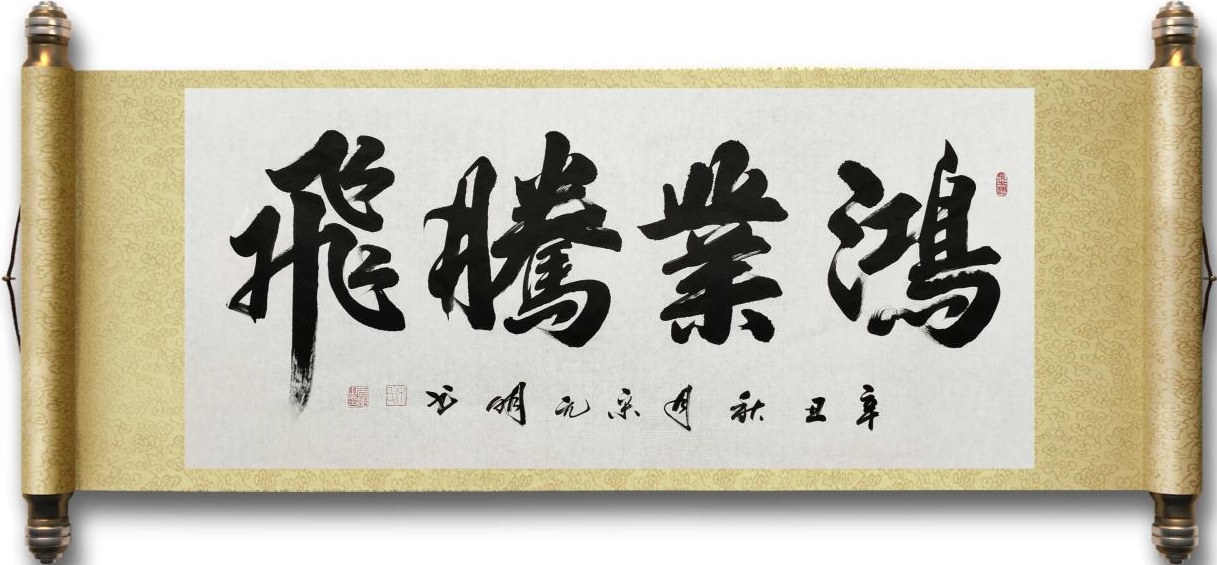 鴻業騰飛
辛丑秋月宋元明书